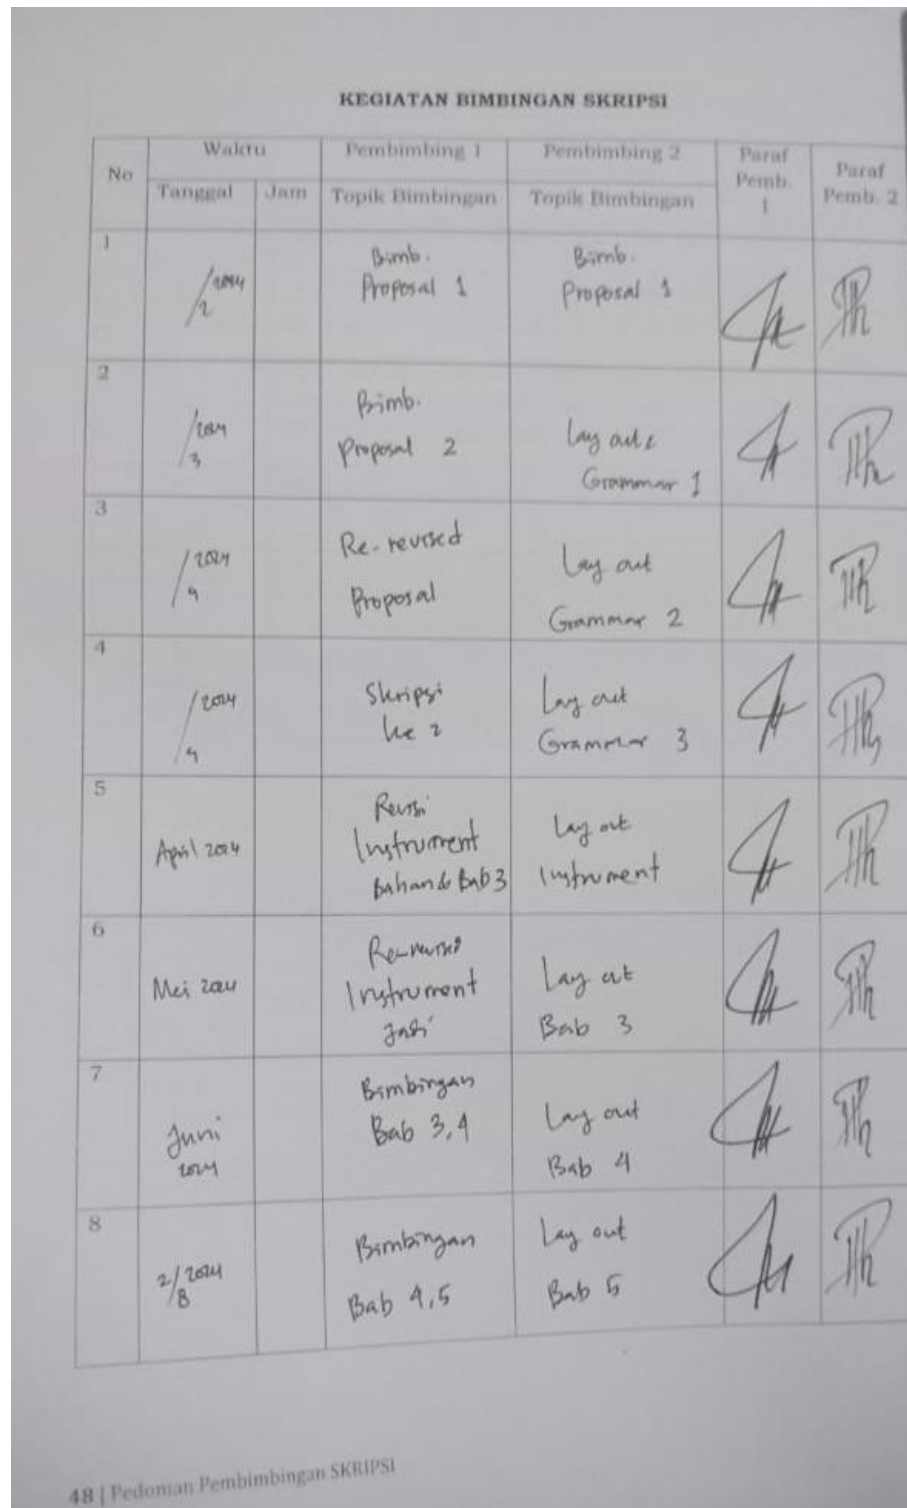 KEGIATAN BIMBINGAN SKRIPSI
No
Waktu
Pembimbing 1
Pembimbing 2
Paraf
Pemb.
1
Paraf
Pemb. 2
Tanggal
Jam
Topik Bimbingan
Topik Bimbingan
1
/2024
/2
Bimb.
Proposal 1
Bimb.
Proposal 1
2
/2024
/3
Bimb.
Proposal 2
Lay out
Grammar 1
3
/2024
/4
Re-revised
Proposal
Lay out
Grammar 2
4
/2024
/4
Skripsi
ke 2
Lay out
Grammar 3
5
April 2024
Revisi
Instrument
Bab 3
Lay out
Instrument
6
Mei 2024
Re-revised
Instrument
Lay out
Bab 3
7
Juni
2024
Bimbingan
Bab 3,4
Lay out
Bab 4
8
2/2024
8
Bimbingan
Bab 4,5
Lay out
Bab 5
48 | Pedoman Pembimbingan SKRIPSI